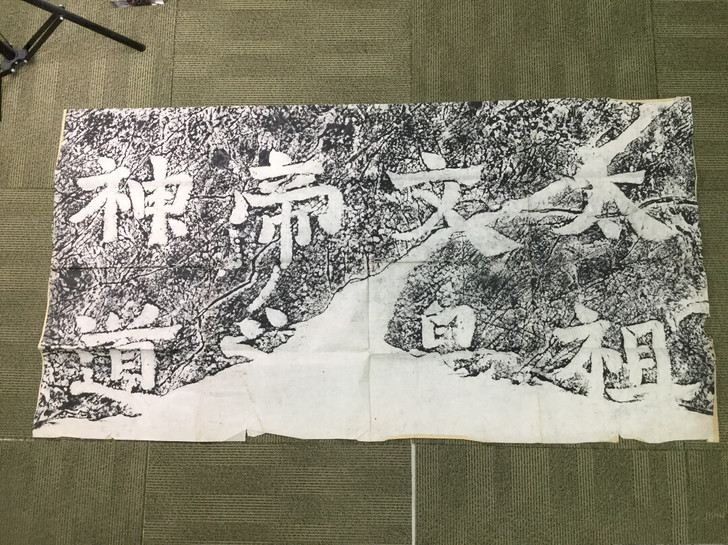 太祖
文皇
帝之
神道